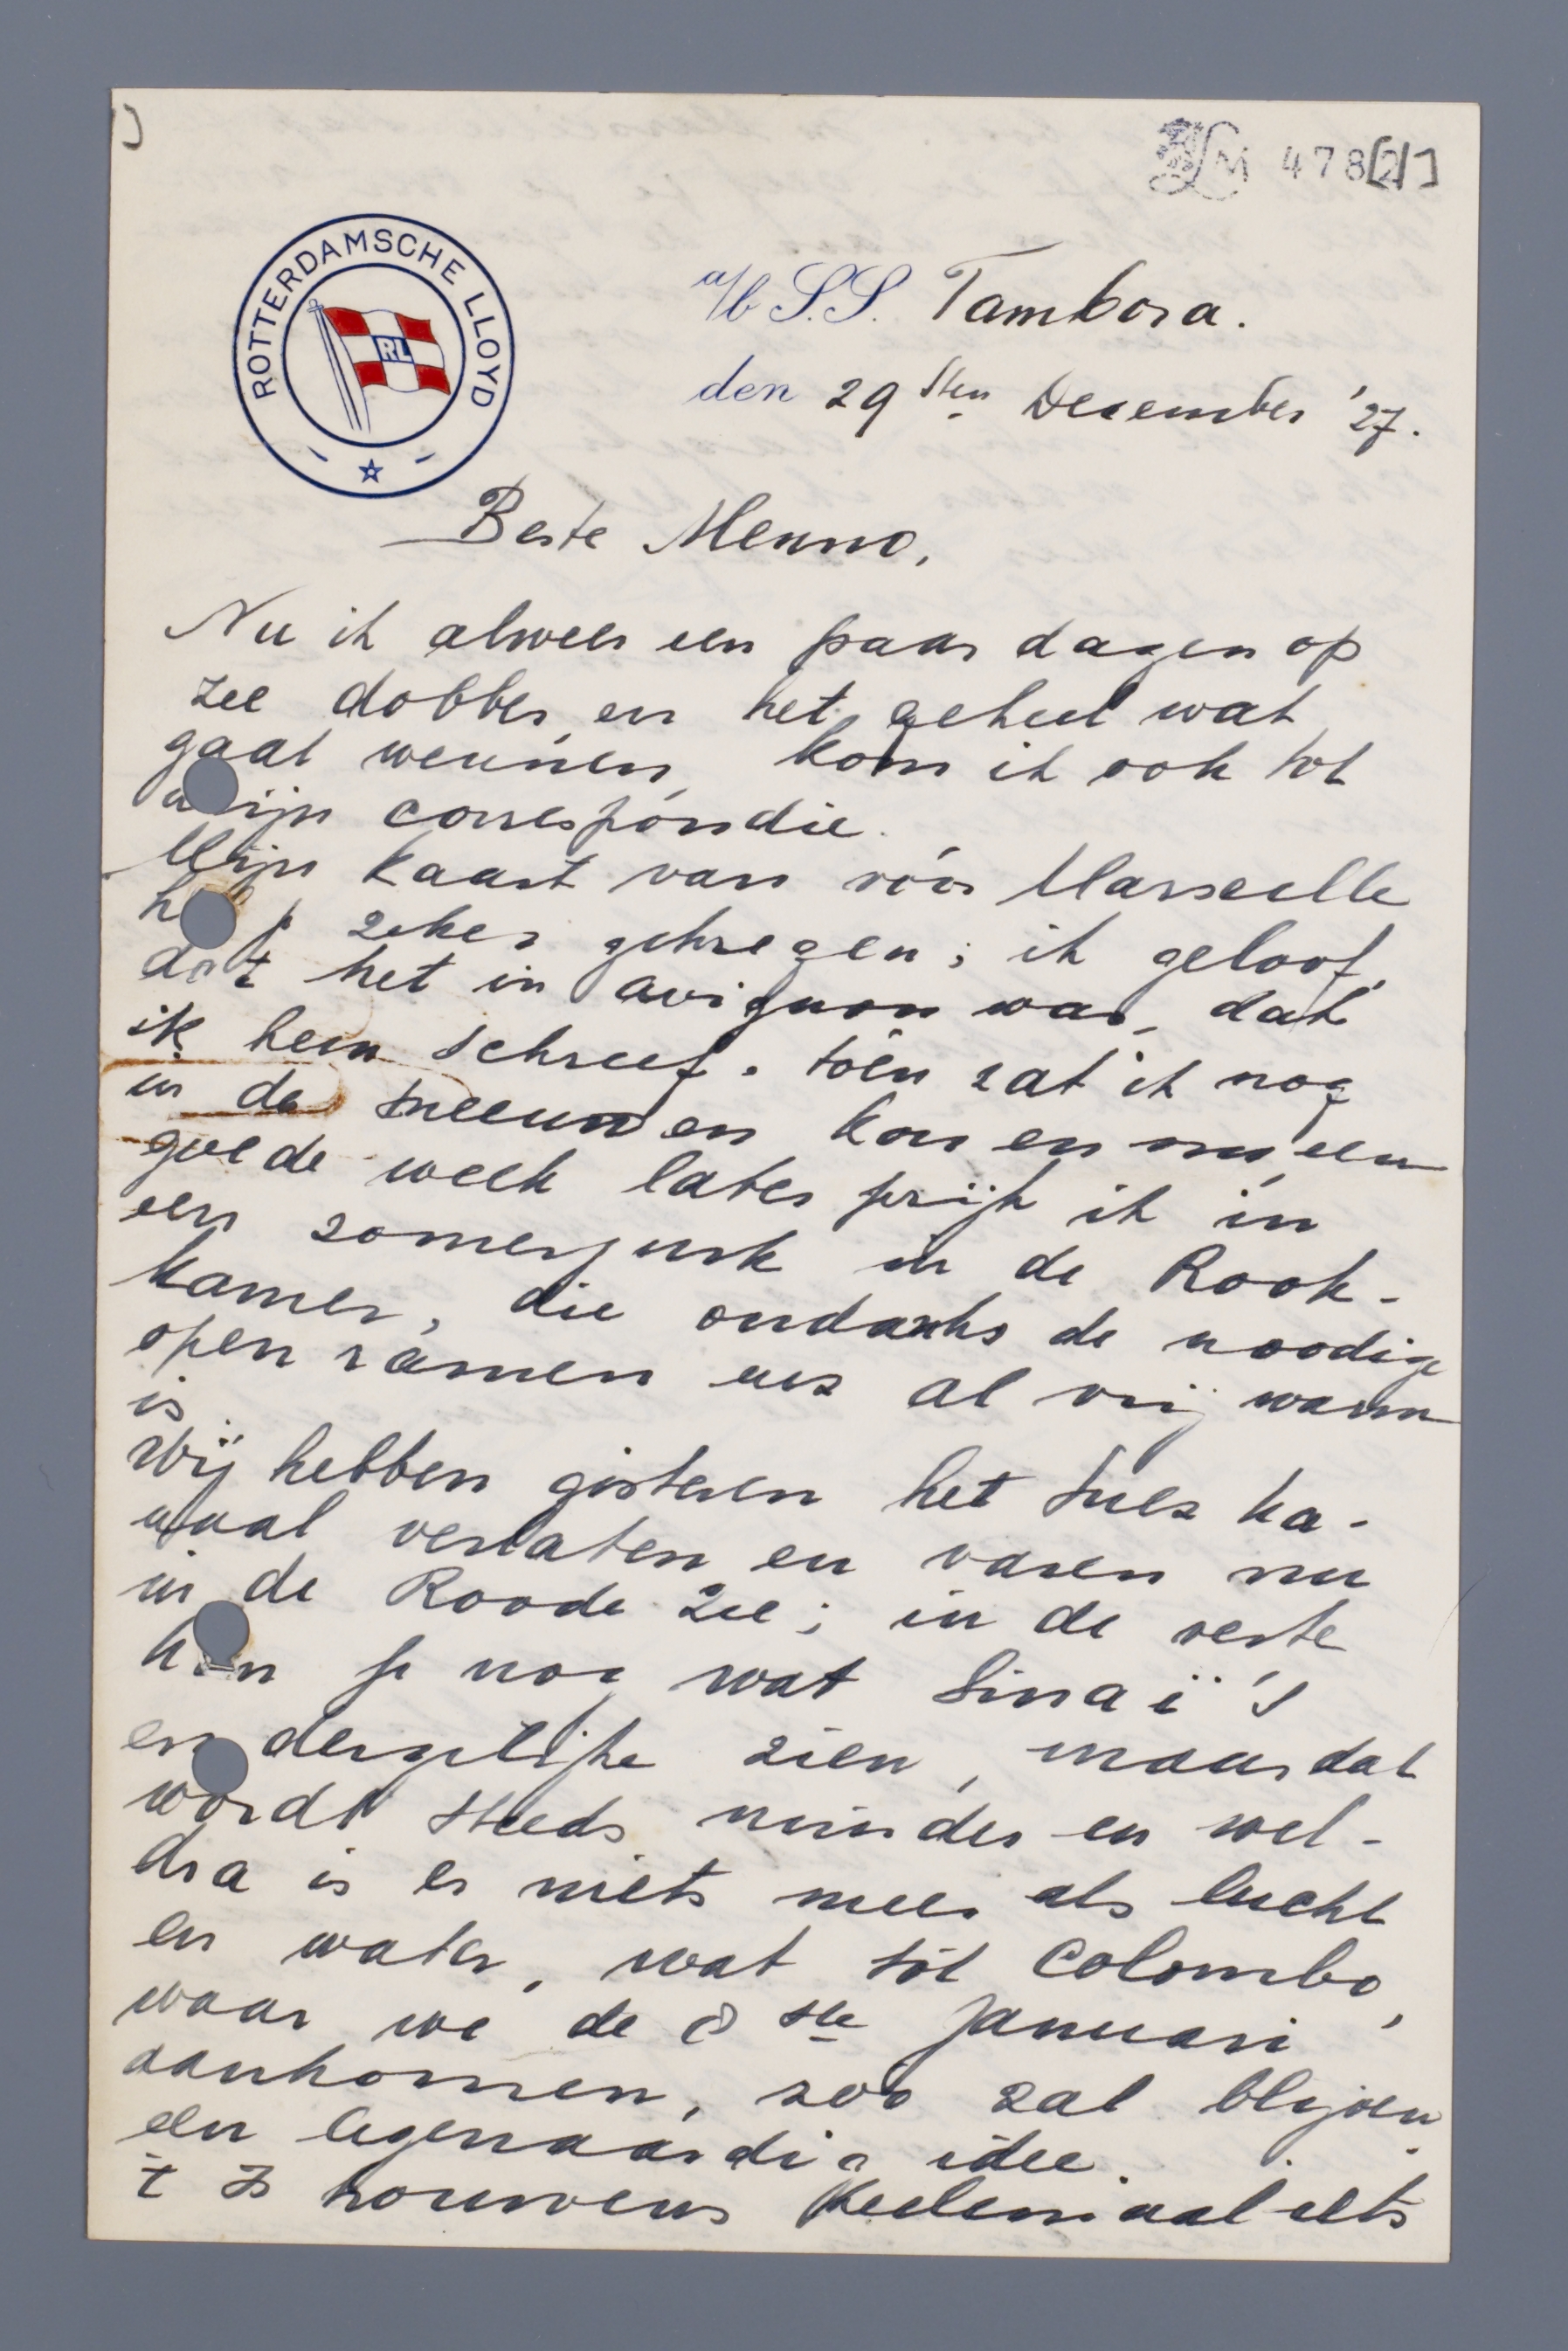 ]
LM 478[2]]
ROTTERDAMSCHE LLOYD
RL
a/b S.S. Tambora.
den 29sten December '27.
Beste Menno,
Nu ik alweer een paar dagen op
zee dobber, en het geheel wat
gaat wennen, kom ik ook tot
mijn correspondie.
Mijn kaart van vóór Marseille
heb je zeker gekregen; ik geloof,
dat het in Avignon was, dat
ik hem schreef. toen zat ik nog
in de sneeuw en kou en nu een
goede week later prijk ik in
een zomerjurk in de Rook-
kamer, die ondanks de noodige
open ramen enz al vrij warm
is
Wij hebben gisteren het Suez ka-
naal verlaten en varen nu
in de Roode Zee; in de verte
kan je nog wat Sinaï's
en dergelijke zien, maar dat
wordt steeds minder en wel-
dra is er niets meer als lucht
en water, wat tot Colombo,
waar we de 8ste Januari
aankomen, zoo zal blijven.
een eigenaardig idee.
't Is trouwens heelemaal iets